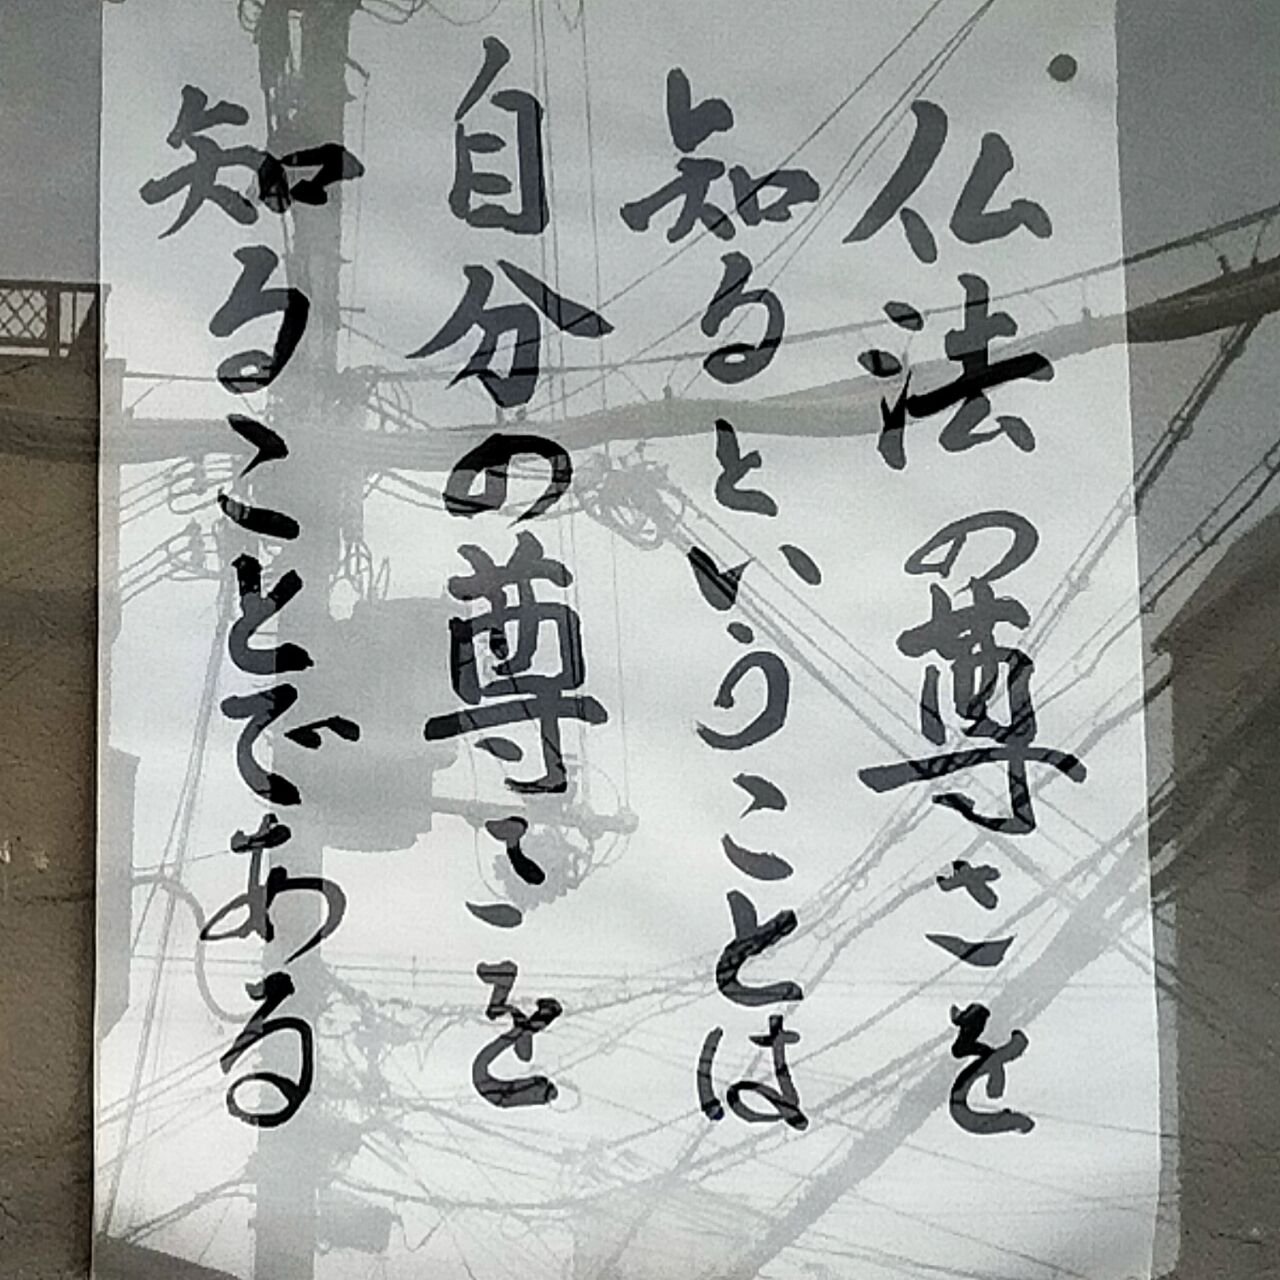 仏法の尊さを
知るということは
自分の尊さを
知ることである